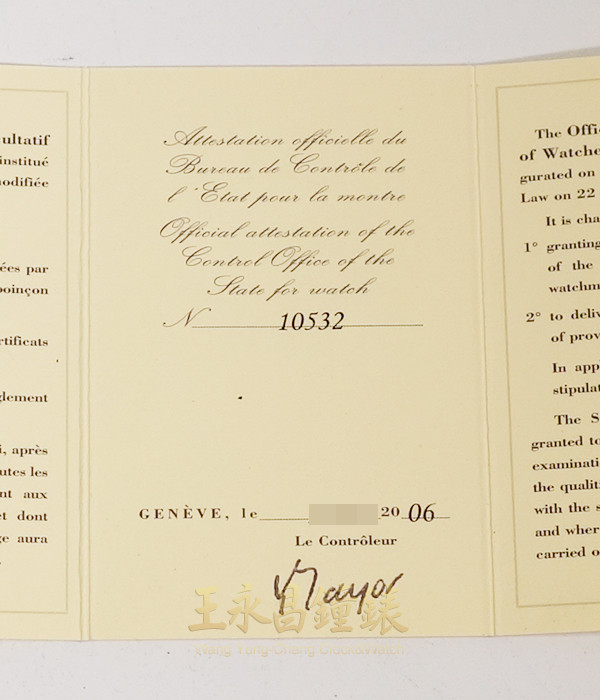 ultatif
institué
nodifiée
ées par
poinçon
rtificats
glement
i, après
utes les
nt aux
et dont
ge aura
Attestation officielle du
Bureau de Contrôle de
l'Etat pour la montre
Official attestation of the
Control Office of the
State for watch
N 10532
GENÈVE, le 20 06
Le Contrôleur
Mayor
王永昌鐘錶
Wang Yung Chang Clock&Watch
The Offic
of Watche
gurated on
Law on 22
It is cha
1° granting
of the
watchm
2° to deliv
of prov
In app
stipulat
The S
granted to
examinati
the qualit
with the s
and wher
carried o